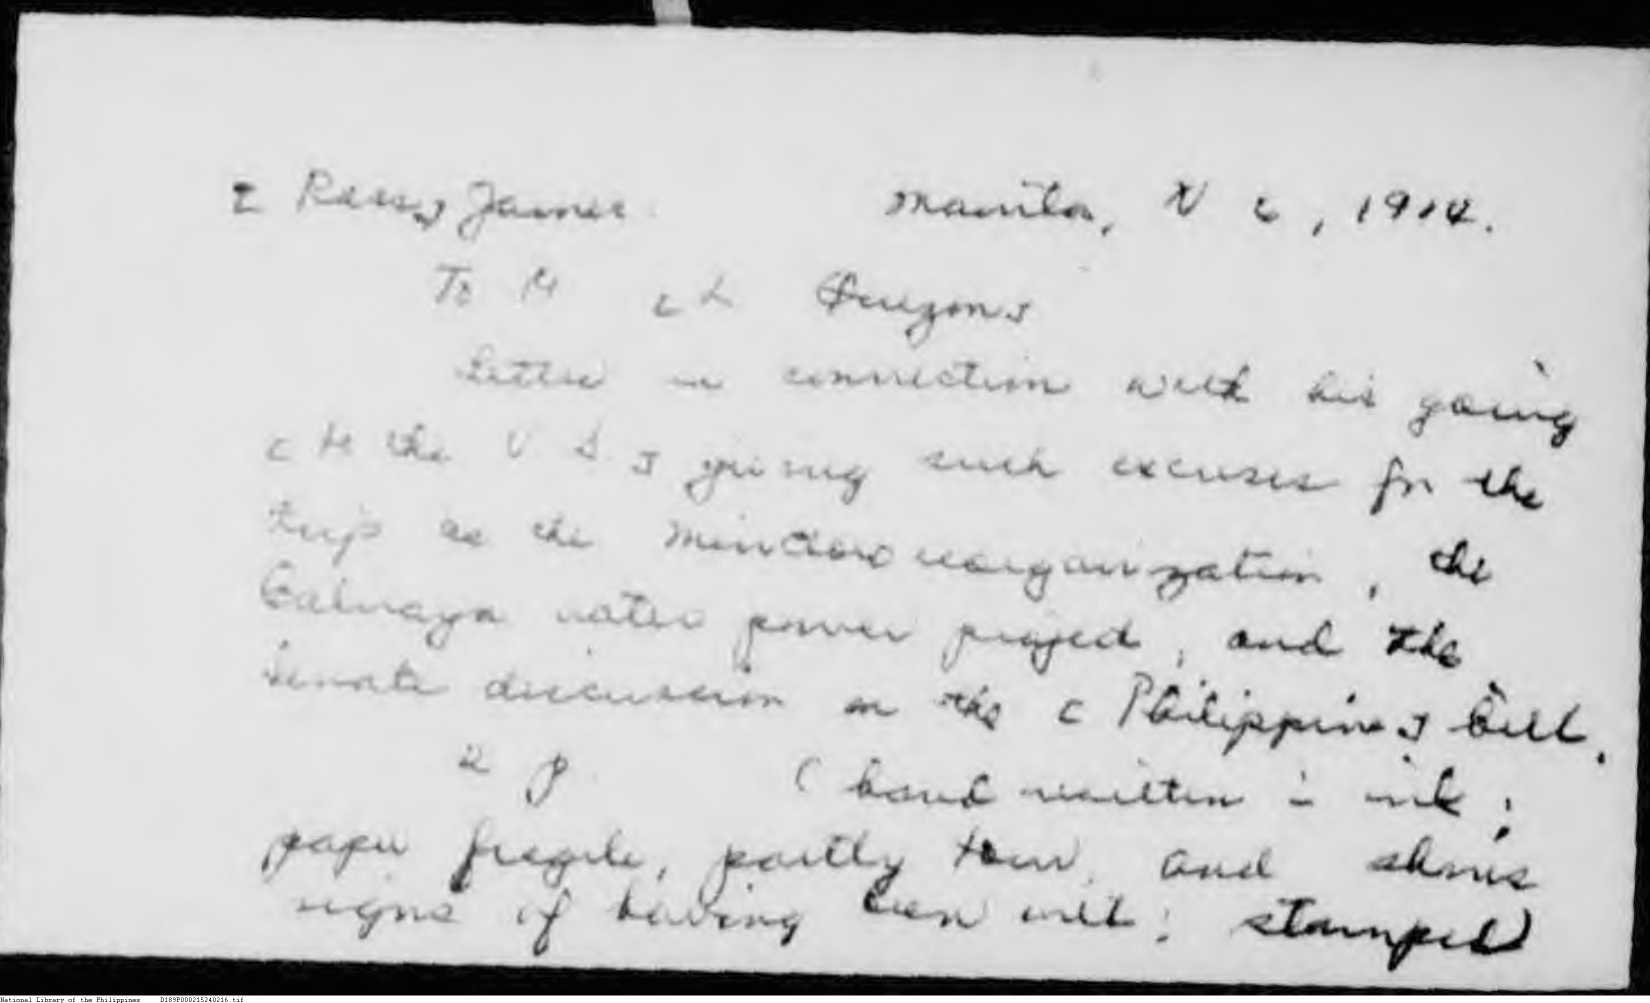 Ross, James Manila, N 6, 1914.
To M L Quezon,
Letter in connection with his going
to the U S, giving such excuses for the
trip as the Mindoro reorganization, the
water power project, and the
Senate discussion on the Philippines bill.
2 p. (handwritten in ink;
paper fragile, partly torn, and shows
signs of having been wet; stamped)
National Library of the Philippines D189P000215240216.tif